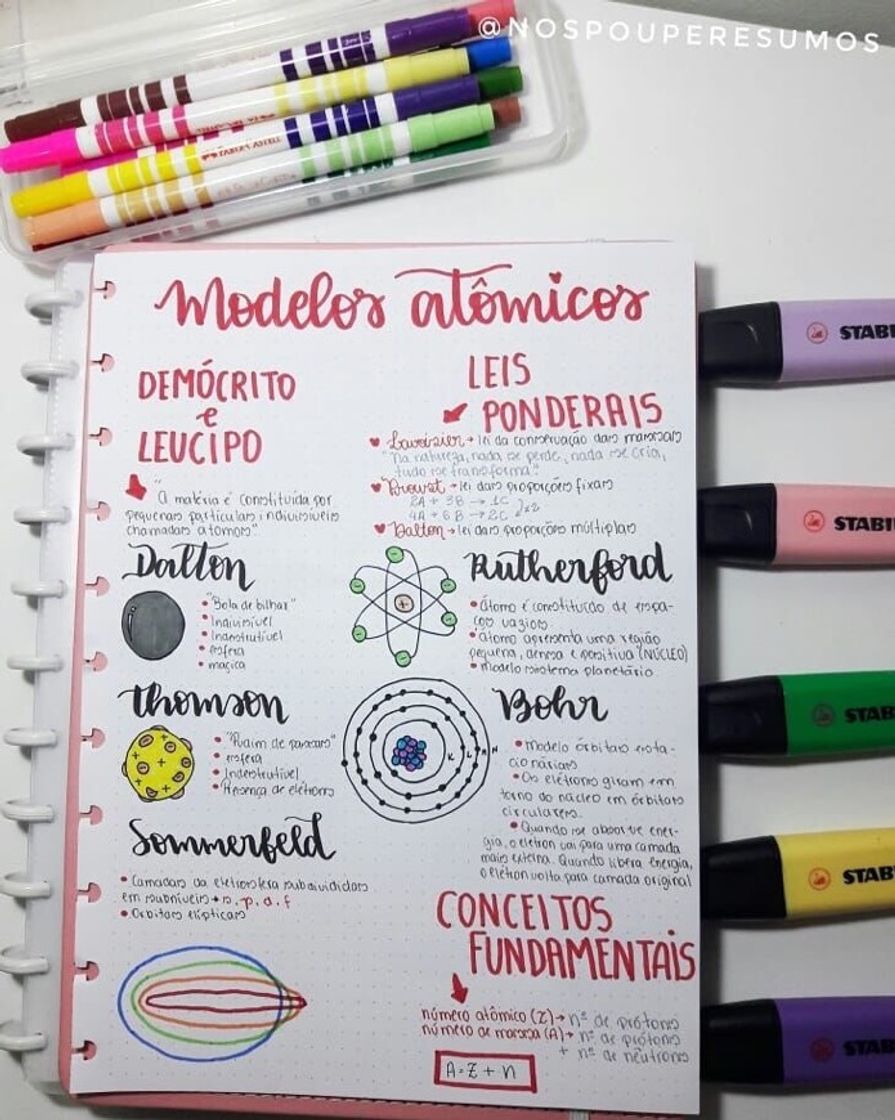 @NOSPOUPERESUMOS
FABER-CASTELL
Modelos atômicos
DEMÓCRITO
e
LEUCIPO
"A matéria é constituída por
pequenas partículas indivisíveis
chamadas átomos"
LEIS
PONDERAIS
Lavoisier → lei da conservação das massas
"Na natureza, nada se perde, nada se cria,
tudo se transforma."
Proust → lei das proporções fixas
2A + 3B → 1C
4A + 6B → 2C
Dalton → lei das proporções múltiplas
Dalton
• "Bola de bilhar"
• Indivisível
• Indestrutível
• esfera
• maciça
Rutherford
• Átomo é constituído de espa-
ços vazios.
• átomo apresenta uma região
pequena, densa e positiva (NÚCLEO)
• modelo sistema planetário
Thomson
• "Pudim de passas"
• esfera
• Indestrutível
• Presença de elétrons
Bohr
K L M N
• modelo órbitas esta-
cionárias
• Os elétrons giram em
torno do núcleo em órbitas
circulares.
• Quando se absorve ener-
gia, o elétron vai para uma camada
mais externa. Quando libera energia,
o elétron volta para camada original
Sommerfeld
• Camadas da eletrosfera subdivididas
em subníveis → s, p, d, f
• Órbitas elípticas
CONCEITOS
FUNDAMENTAIS
número atômico (Z) → nº de prótons
número de massa (A) → nº de prótons
+ nº de nêutrons
A = Z + n
STABI
STABI
STAB
STAB
STAB